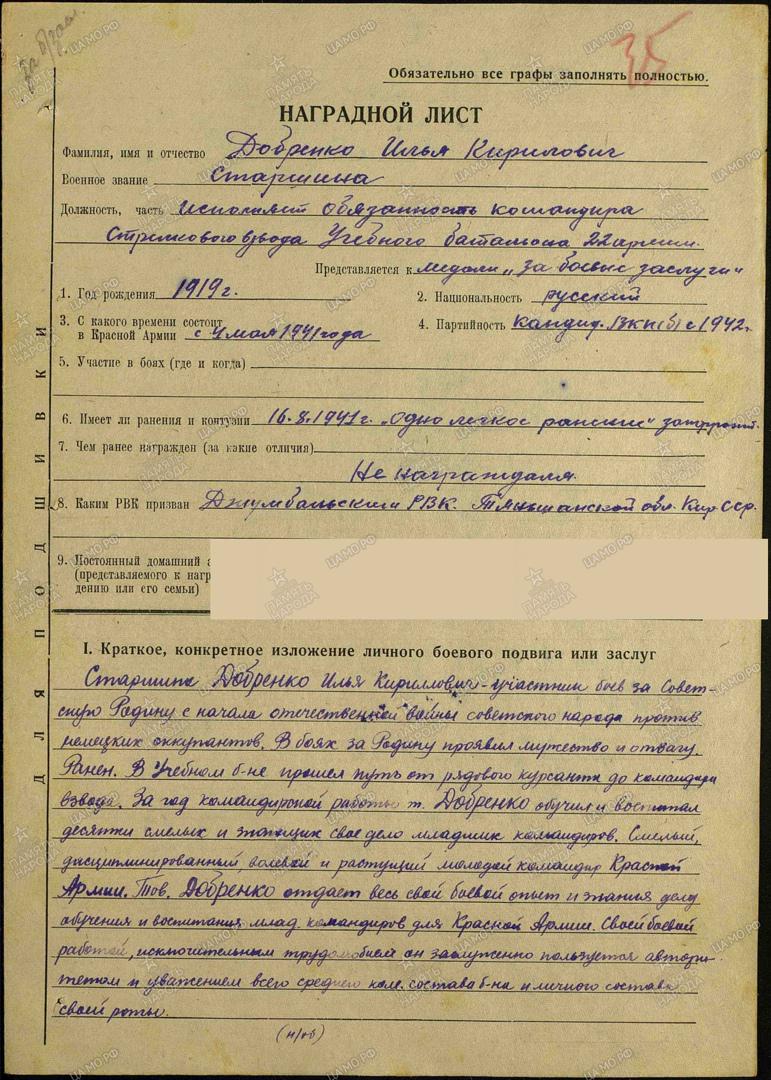 35
Обязательно все графы заполнять полностью.
НАГРАДНОЙ ЛИСТ
Фамилия, имя и отчество Добренко Илья Кирилович
Военное звание Старшина
Должность, часть исполняет обязанность командира
Стрелкового взвода Учебного батальона 22 армии.
Представляется к медали „за боевые заслуги“
1. Год рождения 1919 г.
2. Национальность русский
3. С какого времени состоит
в Красной Армии с 4 мая 1941 года
4. Партийность кандид. ВКП(б) с 1942г.
5. Участие в боях (где и когда)
6. Имеет ли ранения и контузии 16.8.1941 г. „одно легкое ранение“
7. Чем ранее награжден (за какие отличия)
Не награждался.
8. Каким РВК призван Джумбальским РВК. Тяньшанской обл. Кир.ССР.
9. Постоянный домашний
(представляемого к
дению или его семьи)
ДЛЯ ПОДШИВКИ
I. Краткое, конкретное изложение личного боевого подвига или заслуг
Старшина Добренко Илья Кириллович - участник боев за Совет-
скую Родину с начала отечественной войны советского народа против
немецких оккупантов. В боях за Родину проявил мужество и отвагу.
Ранен. В Учебном б-не прошел путь от рядового курсанта до командира
взвода. За год командирской работы т. Добренко обучил и воспитал
десятки смелых и знающих свое дело младших командиров. Смелый,
дисциплинированный, волевой и растущий молодой командир Красной
Армии. Тов. Добренко отдает весь свой боевой опыт и знания делу
обучения и воспитания млад. командиров для Красной Армии. Своей боевой
работой, исключительным трудолюбием он заслуженно пользуется автори-
тетом и уважением всего среднего ком. состава б-на и личного состава
своей роты.
(н/об)
ПАМЯТЬ НАРОДА
ЦАМО.РФ